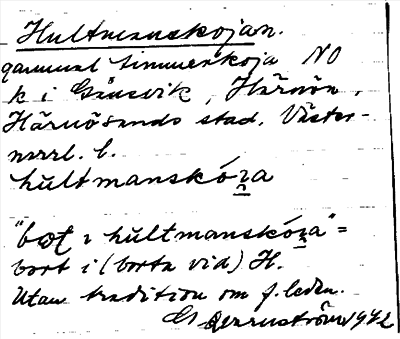 Hultmanskojan.
gammal timmerkoja NO
k i Gånsvik, Härnön,
Härnösands stad. Väster-
norrl. l.
hùltmanskóʒa
"bọt ı hùltmanskóʒa" =
bort i (borta vid) H.
Utan tradition om f. leden.
G 1942